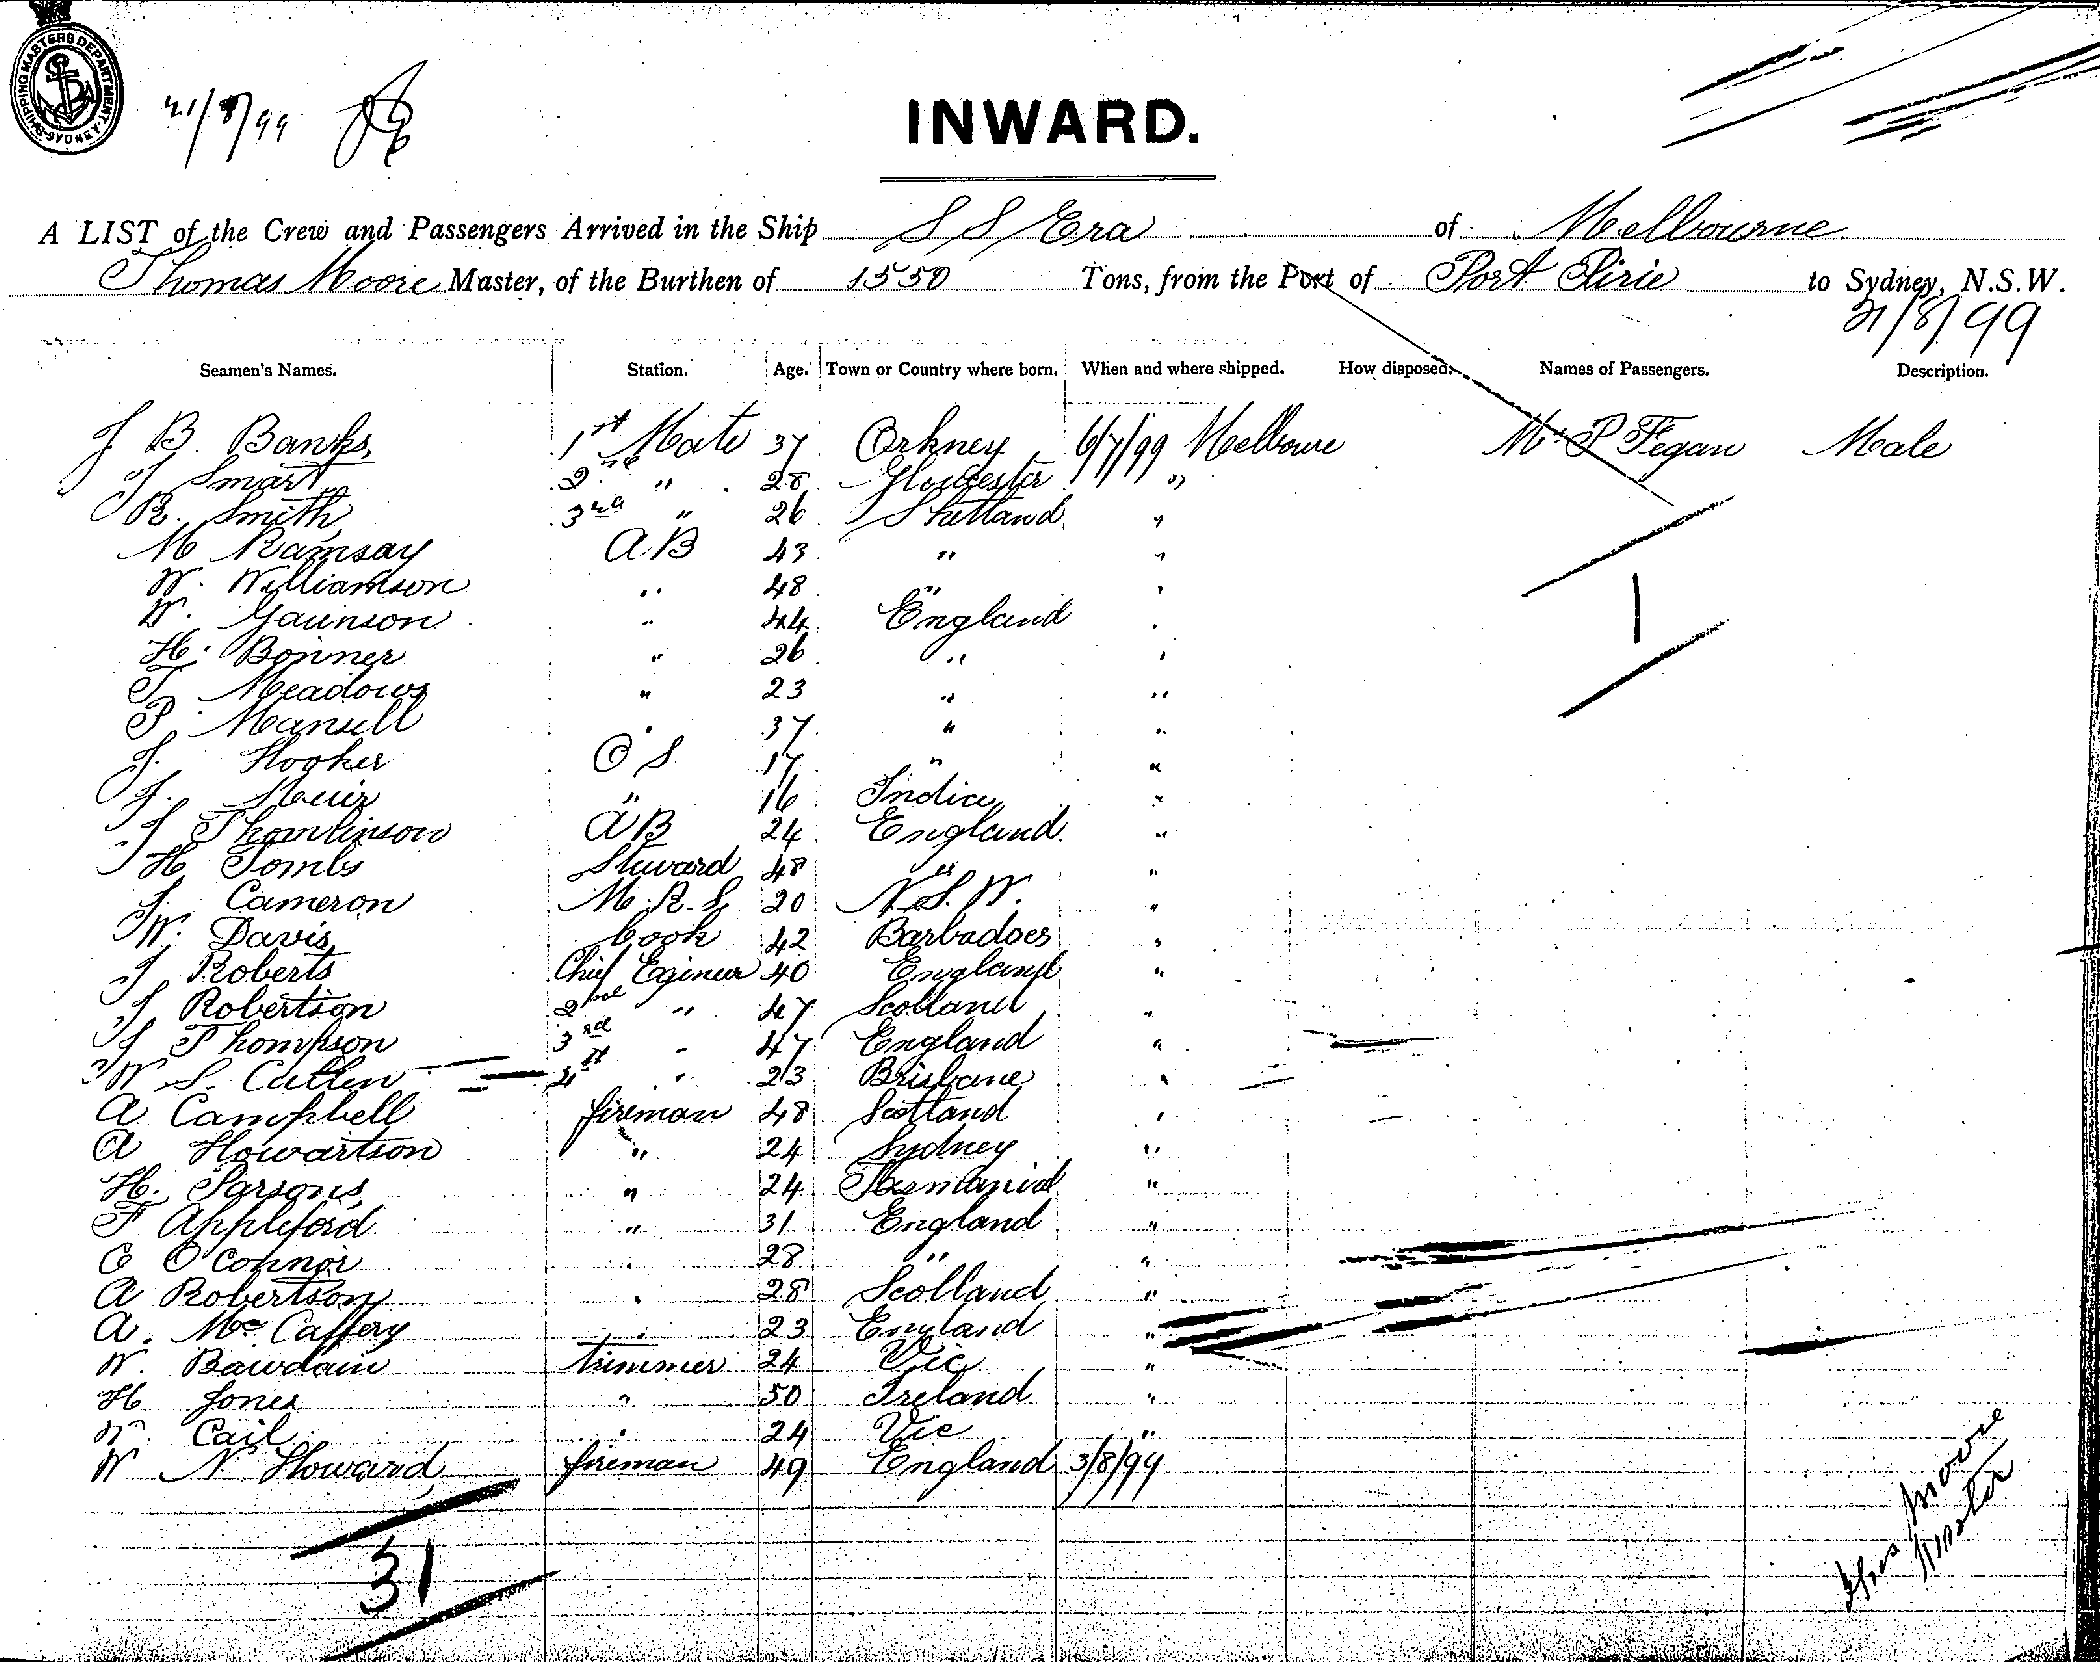 SHIPPING MASTERS DEPARTMENT SYDNEY
21/8/99
INWARD.
A LIST of the Crew and Passengers Arrived in the Ship S S Era of Melbourne
Thomas Moore Master, of the Burthen of 1550 Tons, from the Port of Port Pirie to Sydney, N.S.W.
21/8/99
Seamen's Names. Station. Age. Town or Country where born. When and where shipped. How disposed. Names of Passengers. Description.
J B. Banks 1st Mate 37 Orkney 6/7/99 Melboure Mr P Fegan Male
J Smart 2nd " 28 Gloucester "
R. Smith 3rd " 26 Shetland "
M Ramsay AB 43 " "
W. Williamson " 48 " "
W. Gaunson " 44 England "
H. Bonner " 26 " "
T. Meadows " 23 " "
P. Mansell " 37 " "
J. Hooker O S 17 " "
J. Muir " 16 India "
J Thomlinson AB 24 England "
H Tombs Steward 48 " "
J. Cameron M. R. S. 20 N. S. W. "
W. Davis Cook 42 Barbadoes "
J Roberts Chief Egineer 40 England "
J Robertson 2nd " 47 Scotland "
J Thompson 3rd " 47 England "
W S. Cullen 4th " 23 Brisbane "
A Campbell fireman 48 Scotland "
A Howartson " 24 Sydney "
H. Parsons " 24 Tasmania "
F Appleford " 31 England "
C O'Connor " 28 " "
A Robertson " 28 Scotland "
A. McCaffery " 23 England "
W. Bawdain trimmer 24 Vic "
H Jones " 50 Ireland "
W. Cail " 24 Vic "
W N Howard fireman 49 England 3/8/99
1
31
Thos Moore
Master